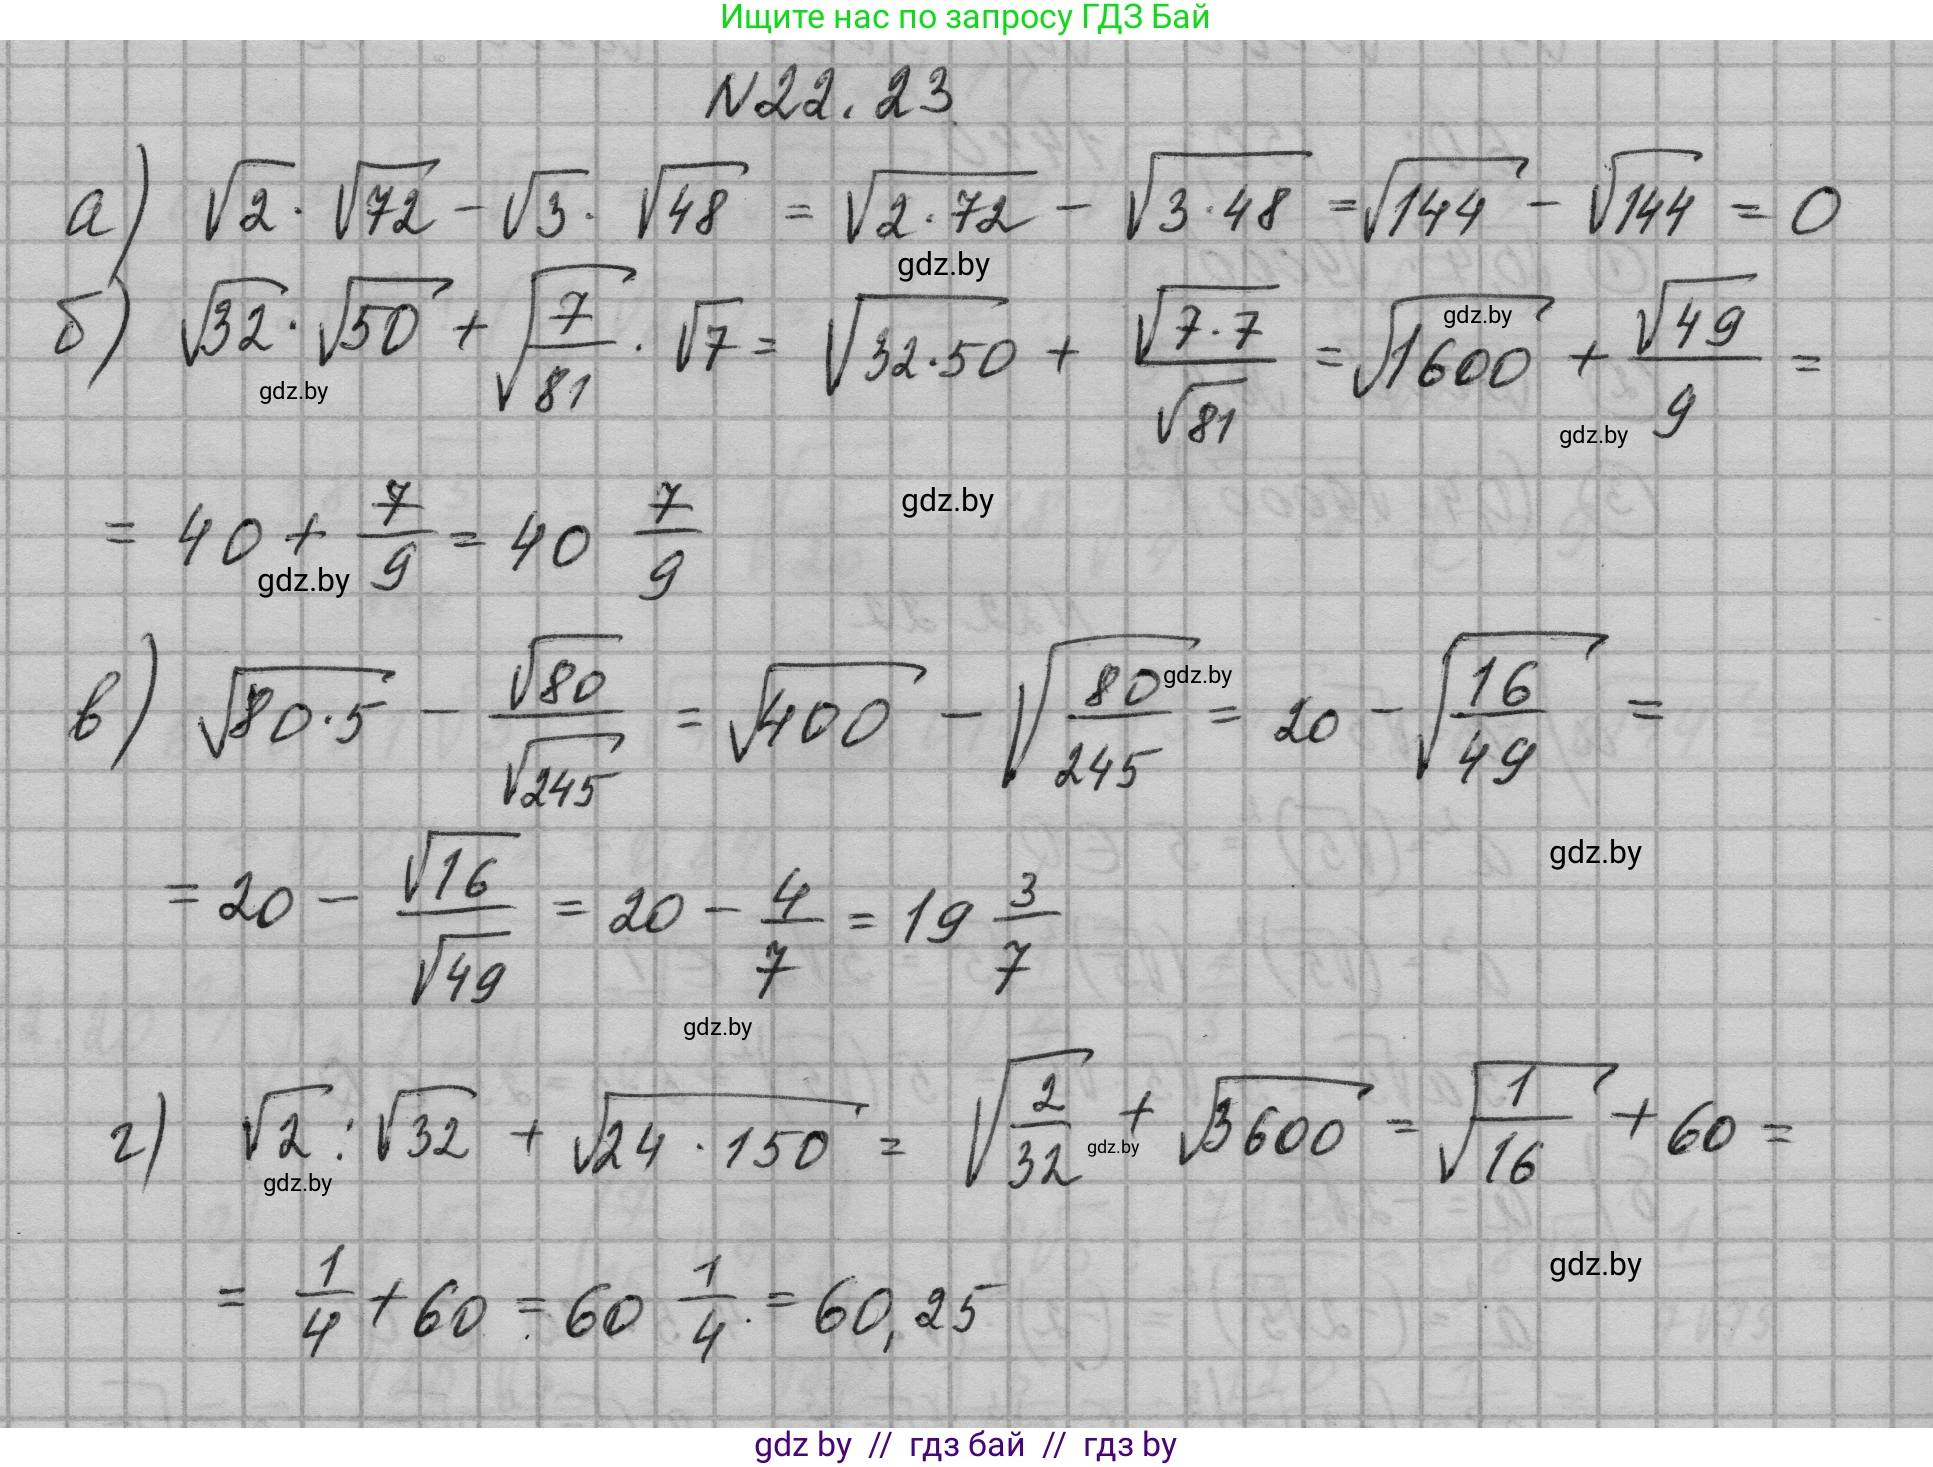 Ищите нас по запросу ГДЗ Бай
N22.23
а) √2 · √72 − √3 · √48 = √(2·72) − √(3·48) = √144 − √144 = 0
gdz.by
б) √32 · √50 + √(7/81) · √7 = √(32·50) + √(7·7)/√81 = √1600 + √49/9 =
gdz.by gdz.by gdz.by
= 40 + 7/9 = 40 7/9
gdz.by gdz.by
в) √(80·5) − √80/√245 = √400 − √(80/245) = 20 − √(16/49) =
gdz.by
= 20 − √16/√49 = 20 − 4/7 = 19 3/7
gdz.by
gdz.by
г) √2 : √32 + √(24 · 150) = √(2/32) + √3600 = √(1/16) + 60 =
gdz.by gdz.by
= 1/4 + 60 = 60 1/4 = 60,25
gdz.by
gdz by // гдз бай // гдз by